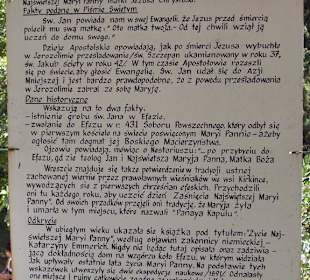 Najświętszej Maryi Panny Matki Jezusa
Fakty podane w Piśmie Świętym
Św. Jan powiada nam w swej Ewangelii, że Jezus przed śmiercią
polecił mu swą matkę: "Oto matka twoja.- Od tej chwili wziął ją
uczeń do domu swego."
Dzieje Apostolskie opowiadają, jak po śmierci Jezusa wybuchło
w Jerozolimie prześladowanie/św. Szczepan ukamienowany w 37,
św. Jakub ścięty w roku 42/. W tym czasie Apostołowie rozeszli
się po świecie, aby głosić Ewangelię. Św. Jan udał się do Azji
Mniejszej i jest bardzo prawdopodobne, że z powodu prześladowania
w Jerozolimie zabrał ze sobą Maryję.
Dane historyczne
Wskazują na to dwa fakty:
-istnienie grobu św. Jana w Efezie.
-zwołanie do Efezu w r. 431 Soboru Powszechnego, który odbył się
w pierwszym kościele na świecie poświęconym Maryi Pannie -ażeby
ogłosić tam dogmat jej Boskiego Macierzyństwa.
Ojcowie powiadają, mówiąc o Nestoriuszu:"... po przybyciu do
Efezu, gdzie teolog Jan i Najświętsza Maryja Panna, Matka Boża
Wreszcie znajduje się także potwierdzenie w tradycji ustnej
zachowanej wiernie przez prawosławnych wieśniaków we wsi Kirkince,
wywodzących się z pierwszych chrześcijan efeskich. Przychodzili
oni tu każdego roku, aby uczcić dzień "Zaśnięcia Najświętszej Maryi
Panny". Od swoich przodków przejęli oni tradycję, że Maryja żyła
i umarła w tym miejscu, które nazwali "Panaya Kapulu".
Odkrycie
W ubiegłym wieku ukazała się książka pod tytułem:"Życie Naj-
świętszej Maryi Panny", według objawień zakonnicy niemieckiej -
Katarzyny Emmerich. Nigdy nie będąc tutaj opisała ona zadziwia-
jącą dokładnością dom na wzgórzu koło Efezu, w którym widziała
jak upływały ostatnie lata życia Maryi Panny. Na podstawie tych
wskazówek utworzyły się dwie ekspedycje naukowe /1891/. Odnalazły